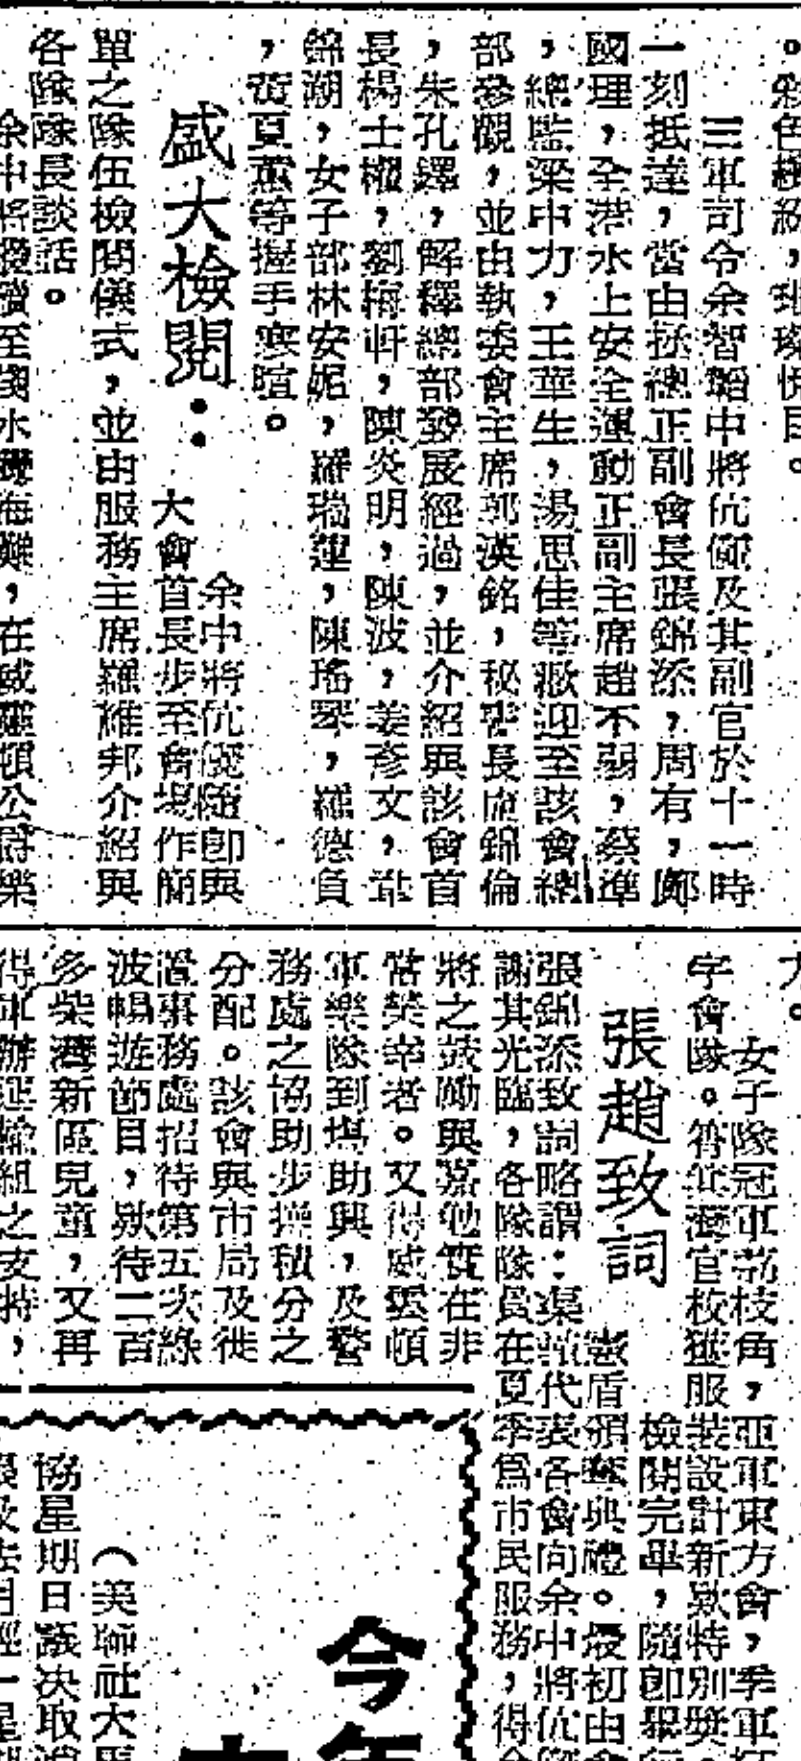 。彩色繽紛，璀璨悅目。
三軍司令余智韜中將伉儷及其副官於十一時
一刻抵達，當由拯總正副會長張錦添，周有，鄭
國理，全港水上安全運動正副主席趙不弱，蔡準
，總監梁中力，王華生，湯思佳等歡迎至該會總
部參觀，並由執委會主席郭漢銘，秘書長施錦倫
，朱孔鐸，解釋總部發展經過，並介紹與該會首
長楊士櫂，劉梅軒，陳炎明，陳波，姜彥文，韋
錦湖，女子部林安妮，羅瑞蓮，陳瑤琴，羅德貞
，黃夏蕙等握手寒暄。
盛大檢閱：
余中將伉儷隨卽與
大會首長步至會場作簡
單之隊伍檢閱儀式，並由服務主席羅維邦介紹與
各隊隊長談話。
余中將後續至淺水灣海灘，在威靈頓公爵樂
方。
女子隊冠軍荔枝角，亞軍東方會，季軍
字會隊。筲箕灣官校獲服裝設計新欵特別獎
檢閱完畢，隨卽舉
張趙致詞
憲盾頒奪典禮。最初由會
張錦添致詞略謂：渠謹代表各會向余中將伉儷
謝其光臨，各隊隊員在夏季爲市民服務，得余
將之鼓勵與嘉勉實在非
常榮幸者。又得威靈頓
軍樂隊到塲助興，及警
務處之協助步操積分之
分配。該會與市局及徙
置事務處招待第五次綠
波暢遊節目，欵待二百
多柴灣新區兒童，又再
得軍辦運輸組之支持，
今年
（美聯社大馬
協星期日議決取消